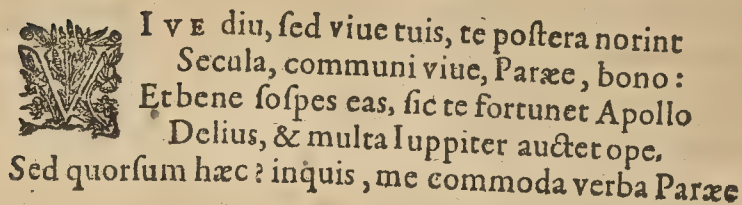 VIVE diu, ſed viue tuis, te poſtera norint
Secula, communi viue, Paræe, bono:
Et bene ſoſpes eas, ſic te fortunet Apollo
Delius, & multa Iuppiter auctet ope.
Sed quorſum hæc? inquis, me commoda verba Paræe